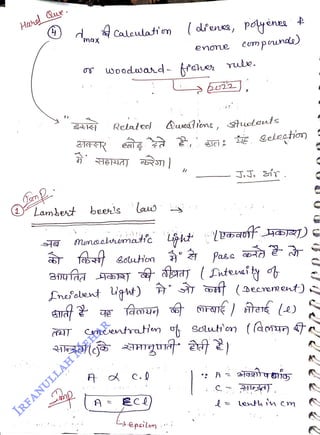 Hard Que.
④ λmax की Calculation ( dienes, polyenes &
enone compounds)
or woodward - fisher rule.
→ 2022
" इससे Related Questions, students
अक्सर छोड़ देते हैं, अतः यह selection
में सहायता करेगा। "
— J.J. sir.
Imp.
② Lambert beer's law →
जब monochromatic light (एकवर्णी प्रकाश)
को किसी solution में से pass करते हैं तो
आपतित प्रकाश की तीव्रता ( Intensity of
Incident light) में जो कमी (Decrement)
आती है वह विलयन की लम्बाई / मोटाई (l)
तथा concentration of solution (विलयन की
सान्द्रता)(c) के समानुपाती होती है।
A α c.l ∵ A = अवशोषणांक
Imp A = Ɛcl C - सान्द्रता
l = lenth in cm
→ epsilon
IRFANULLAH